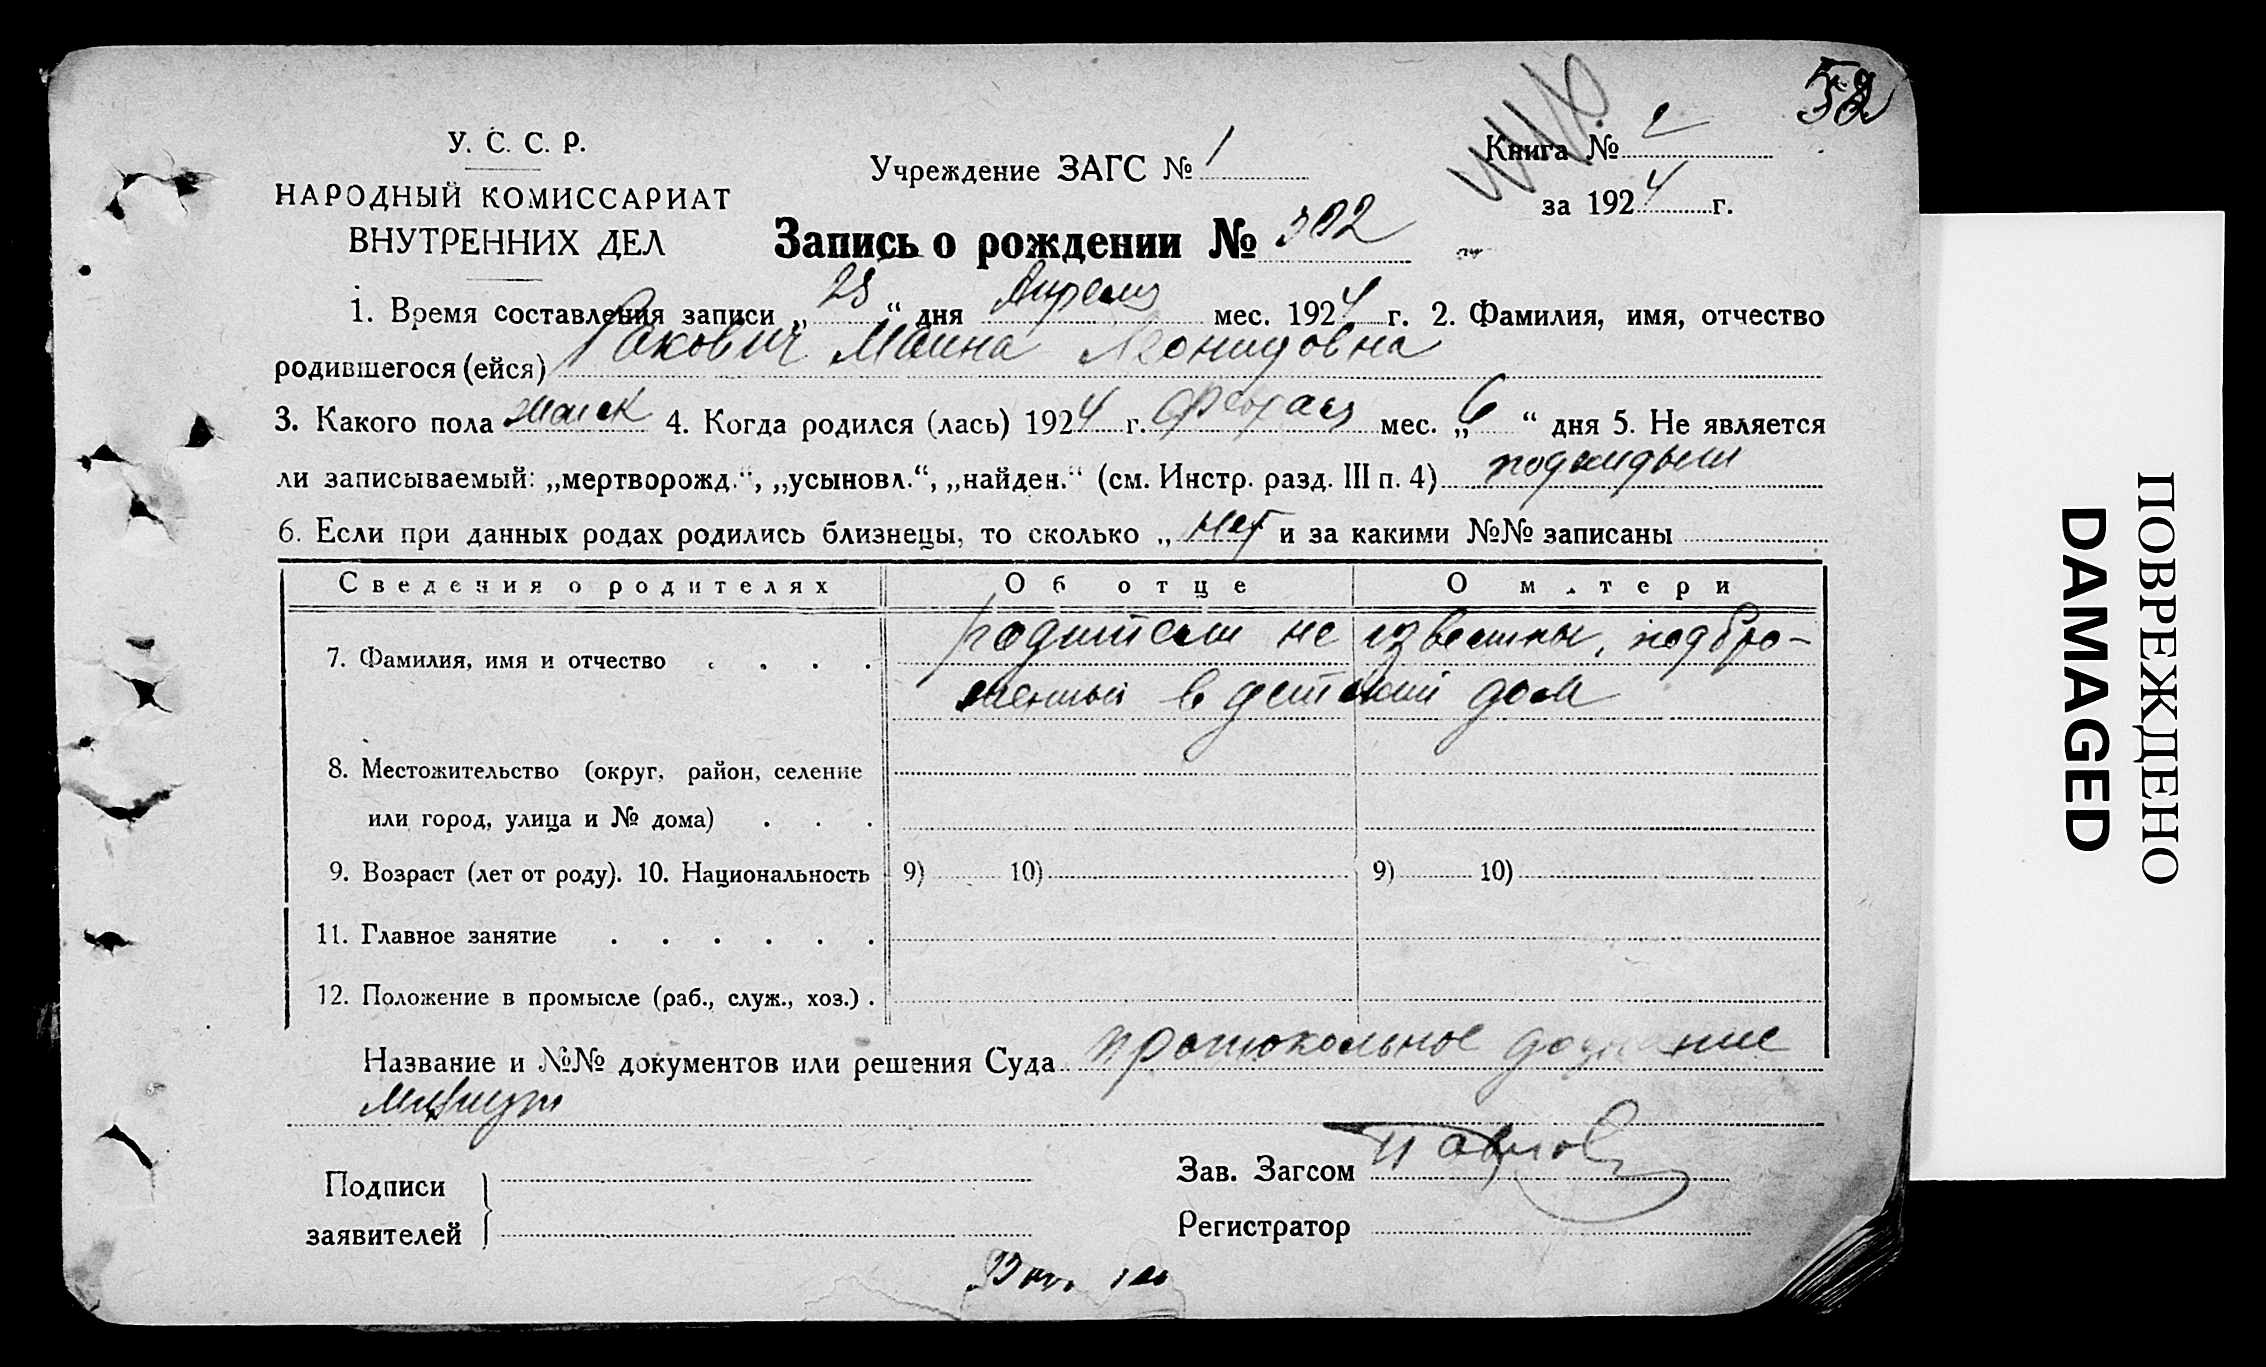 58
У. С. С. Р.
НАРОДНЫЙ КОМИССАРИАТ
ВНУТРЕННИХ ДЕЛ
Учреждение ЗАГС № 1
Книга № 2
за 1924 г.
Запись о рождении № 302
1. Время составления записи „ 25 “ дня Апреля мес. 1924 г. 2. Фамилия, имя, отчество
родившегося (ейся) Ракович Леонидовна
3. Какого пола 4. Когда родился (лась) 1924 г. Февраля мес. „ 6 “ дня 5. Не является
ли записываемый: „мертворожд.“, „усыновл.“, „найден.“ (см. Инстр. разд. III п. 4) подкидыш
6. Если при данных родах родились близнецы, то сколько „ нет и за какими №№ записаны
Сведения о родителях Об отце О м.тери
7. Фамилия, имя и отчество . . . . родители не известны, подбро-
шенный в детский дом
8. Местожительство (округ, район, селение
или город, улица и № дома) . . .
9. Возраст (лет от роду). 10. Национальность 9) 10) 9) 10)
11. Главное занятие . . . . . .
12. Положение в промысле (раб., служ., хоз.) .
Название и №№ документов или решения Суда протокольное дознание
милиции
Подписи
заявителей
Зав. Загсом Павлов
Регистратор
ПОВРЕЖДЕНО
DAMAGED